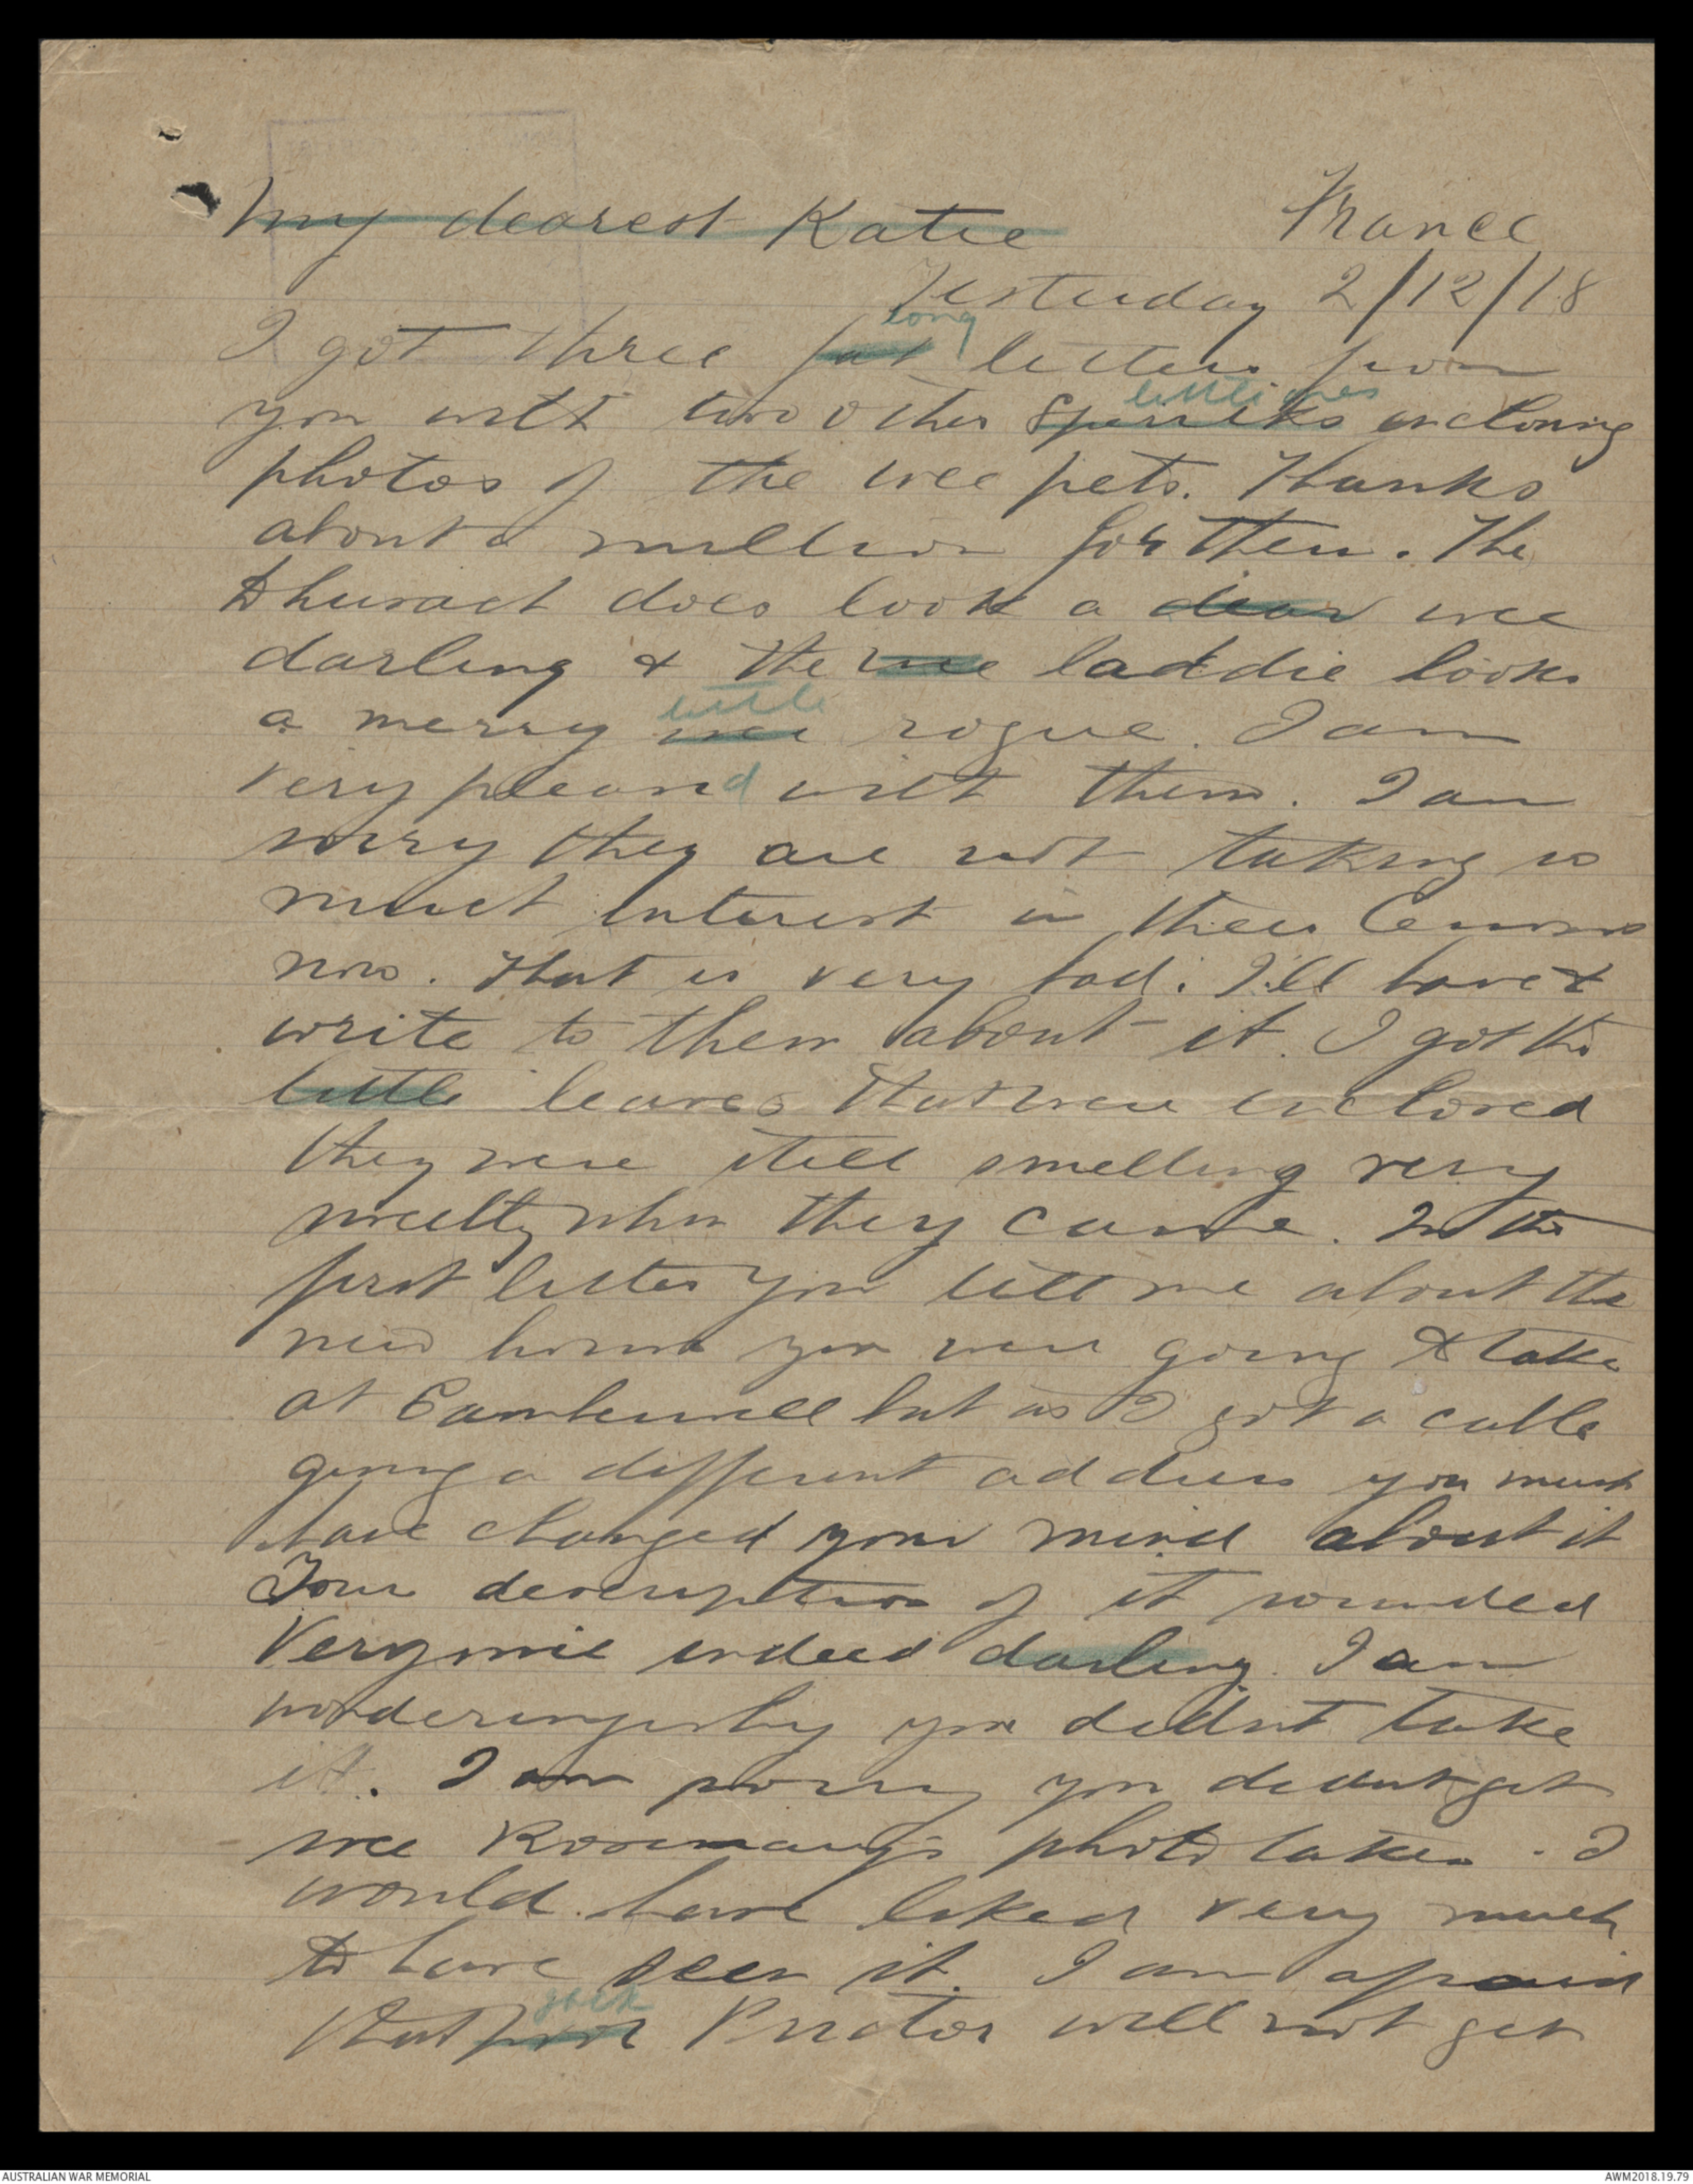 My dearest Katie France
Yesterday 2/12/18
long
I got three fat letters from
little ones
you with two other enclosing
photos of the wee pets. Thanks
about a million for them. The
does look a dear wee
darling & the wee laddie looks
little
a merry wee rogue. I am
very pleased with them. I am
sorry they are not taking so
much interest in their lessons
now. That is very bad. I'll have to
write to them about it. I got the
little leaves that were enclosed
they were still smelling very
sweetly when they came. In the
first letter you tell me about the
new house you were going to take
at Camberwell but as I got a cable
giving a different address you must
have changed your mind about it
Your description of it sounded
very nice indeed darling. I am
wondering why you didn't take
it. I am sorry you didn't get
wee Rosemary's photo taken. I
would have liked very much
to have seen it. I am afraid
Jock
that poor Proctor will not get
AUSTRALIAN WAR MEMORIAL AWM2018.19.79